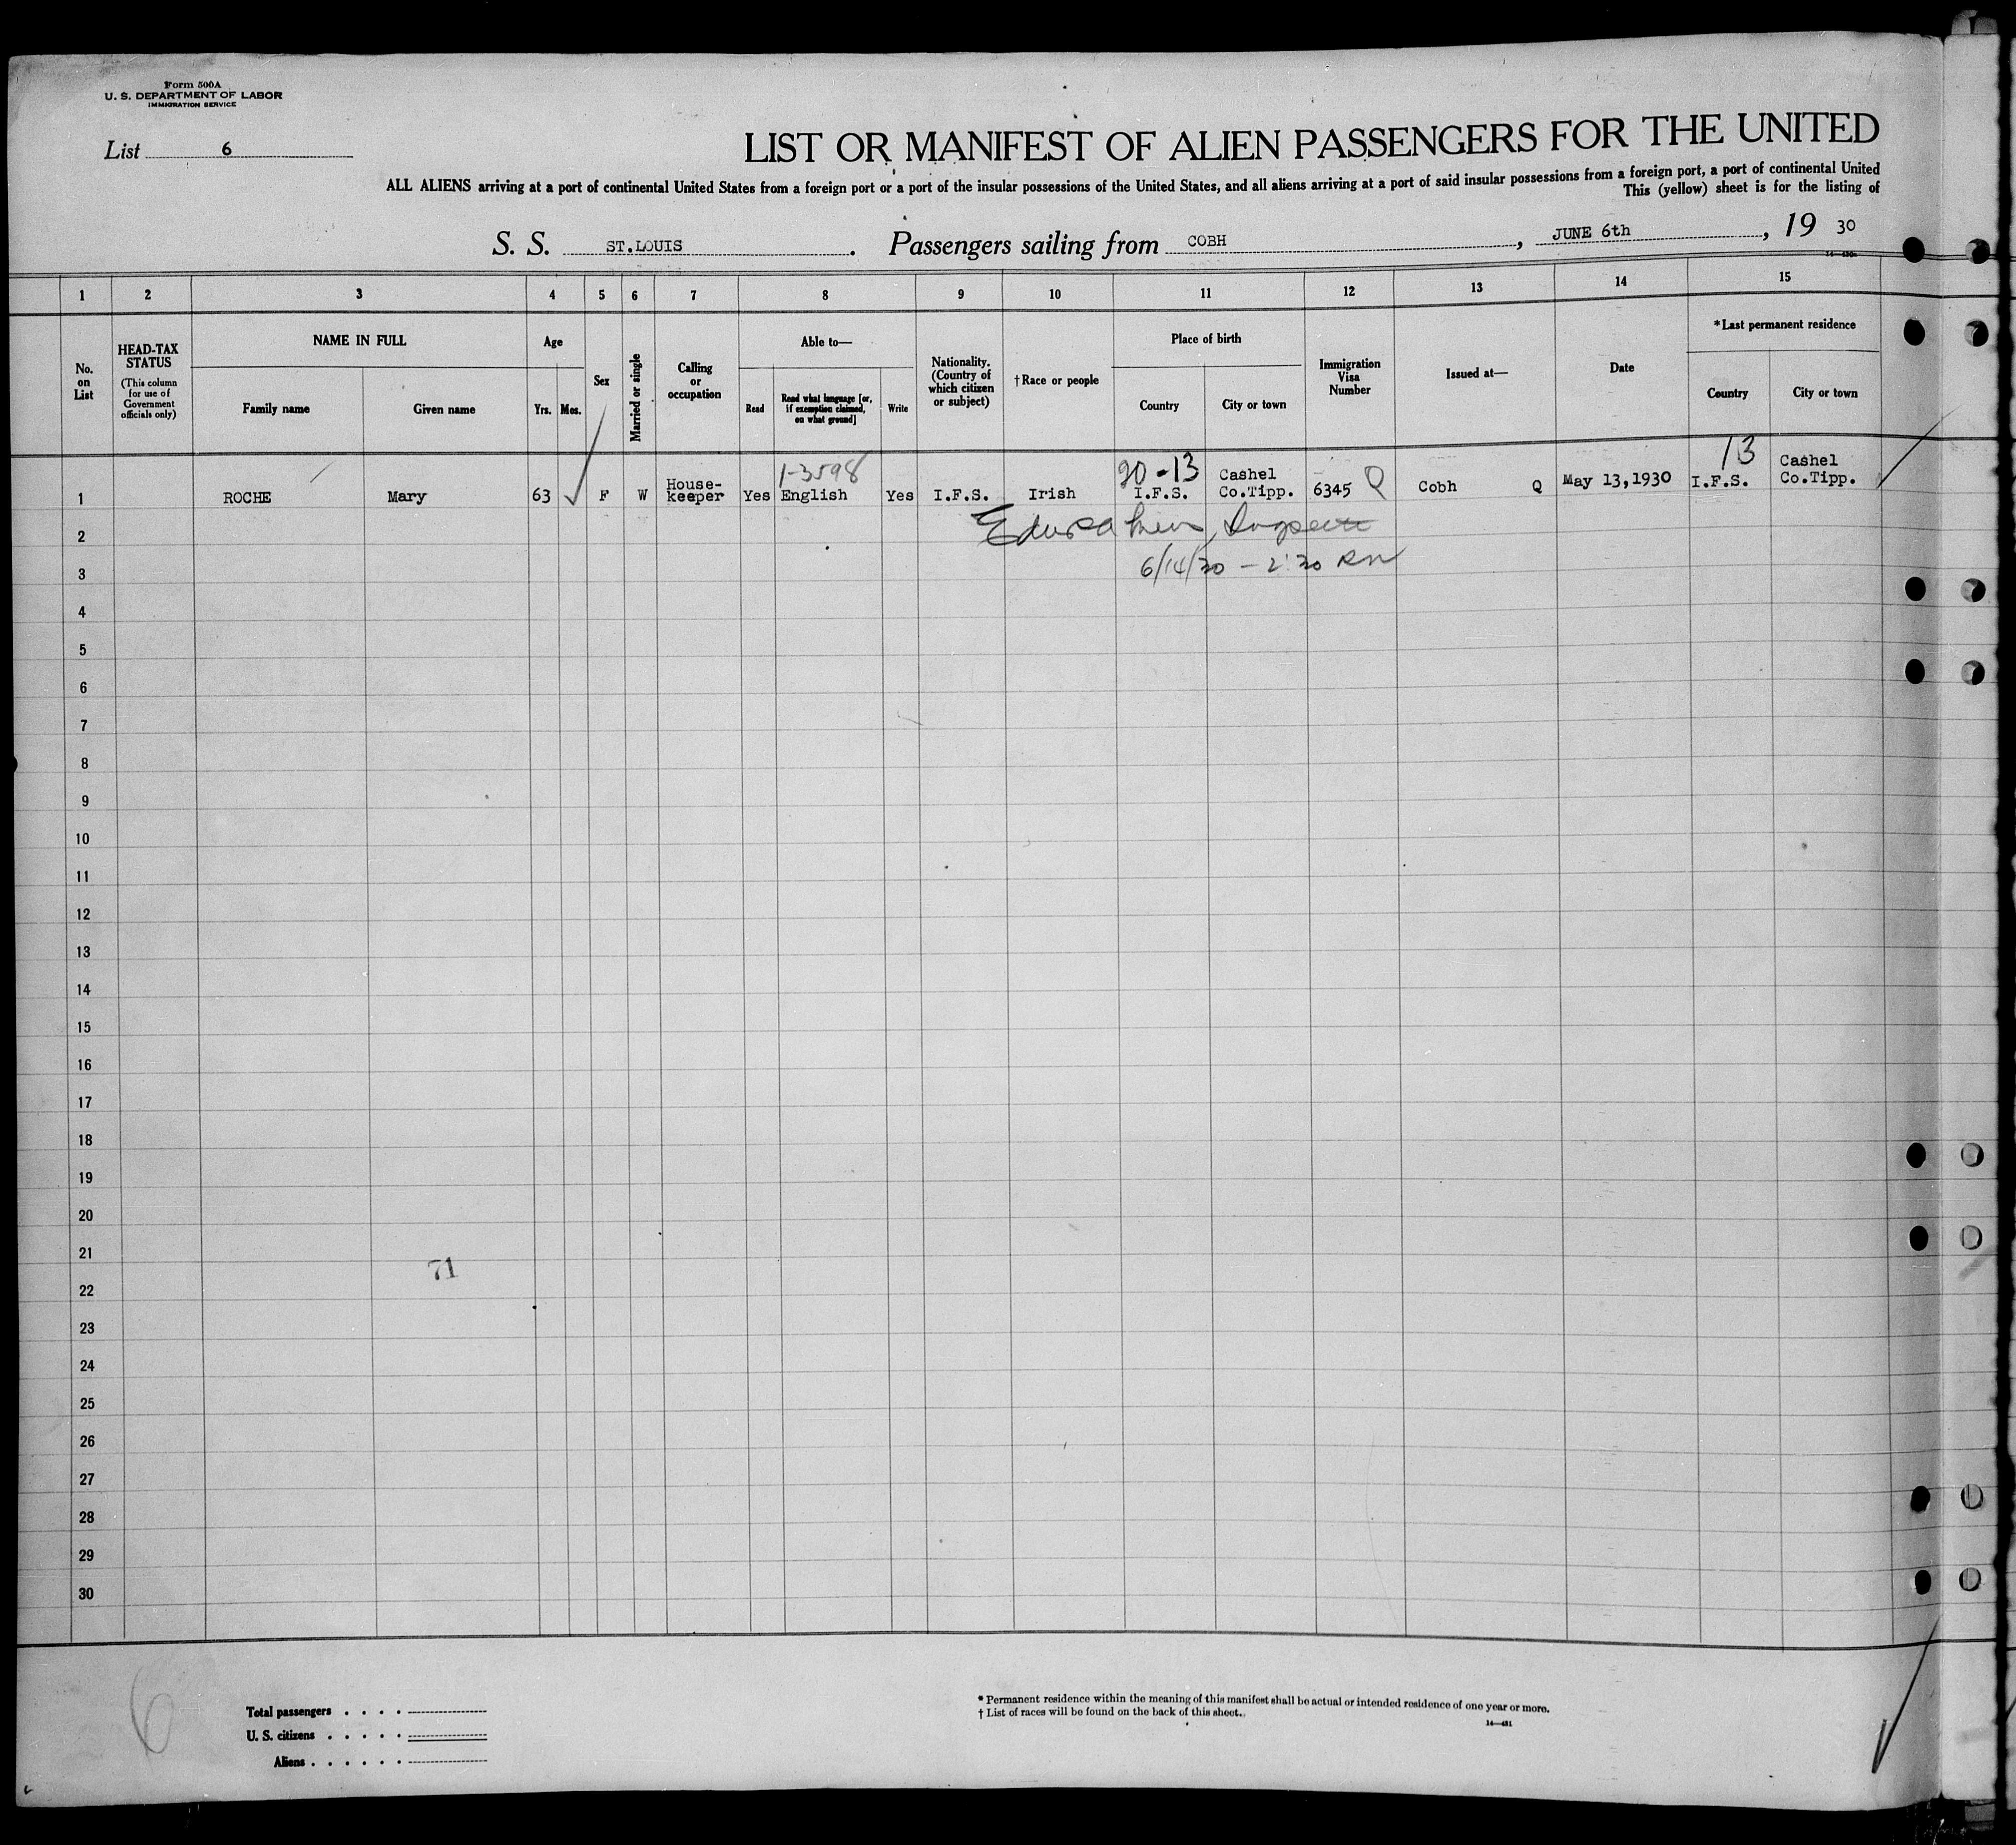 Form 500A
U. S. DEPARTMENT OF LABOR
IMMIGRATION SERVICE
List 6
LIST OR MANIFEST OF ALIEN PASSENGERS FOR THE UNITED
ALL ALIENS arriving at a port of continental United States from a foreign port or a port of the insular possessions of the United States, and all aliens arriving at a port of said insular possessions from a foreign port, a port of continental United
This (yellow) sheet is for the listing of
S. S. ST.LOUIS. Passengers sailing from COBH, JUNE 6th, 19 30
1 2 3 4 5 6 7 8 9 10 11 12 13 14 15
No. on List
HEAD-TAX STATUS
(This column for use of Government officials only)
NAME IN FULL
Family name
Given name
Age
Yrs. Mos.
Sex
Married or single
Calling or occupation
Able to—
Read
Read what language [or, if exemption claimed, on what ground]
Write
Nationality. (Country of which citizen or subject)
†Race or people
Place of birth
Country
City or town
Immigration Visa Number
Issued at—
Date
*Last permanent residence
Country
City or town
1-3598 13
1 ROCHE Mary 63 F W House-keeper Yes English Yes I.F.S. Irish I.F.S. Cashel Co.Tipp. 6345 Q Cobh Q May 13,1930 I.F.S. Cashel Co.Tipp.
2
3 6/14/30 - 2:30
4
5
6
7
8
9
10
11
12
13
14
15
16
17
18
19
20
21
71
22
23
24
25
26
27
28
29
30
6
Total passengers . . . .
U. S. citizens . . . . .
Aliens . . . . . .
* Permanent residence within the meaning of this manifest shall be actual or intended residence of one year or more.
† List of races will be found on the back of this sheet.
14—481